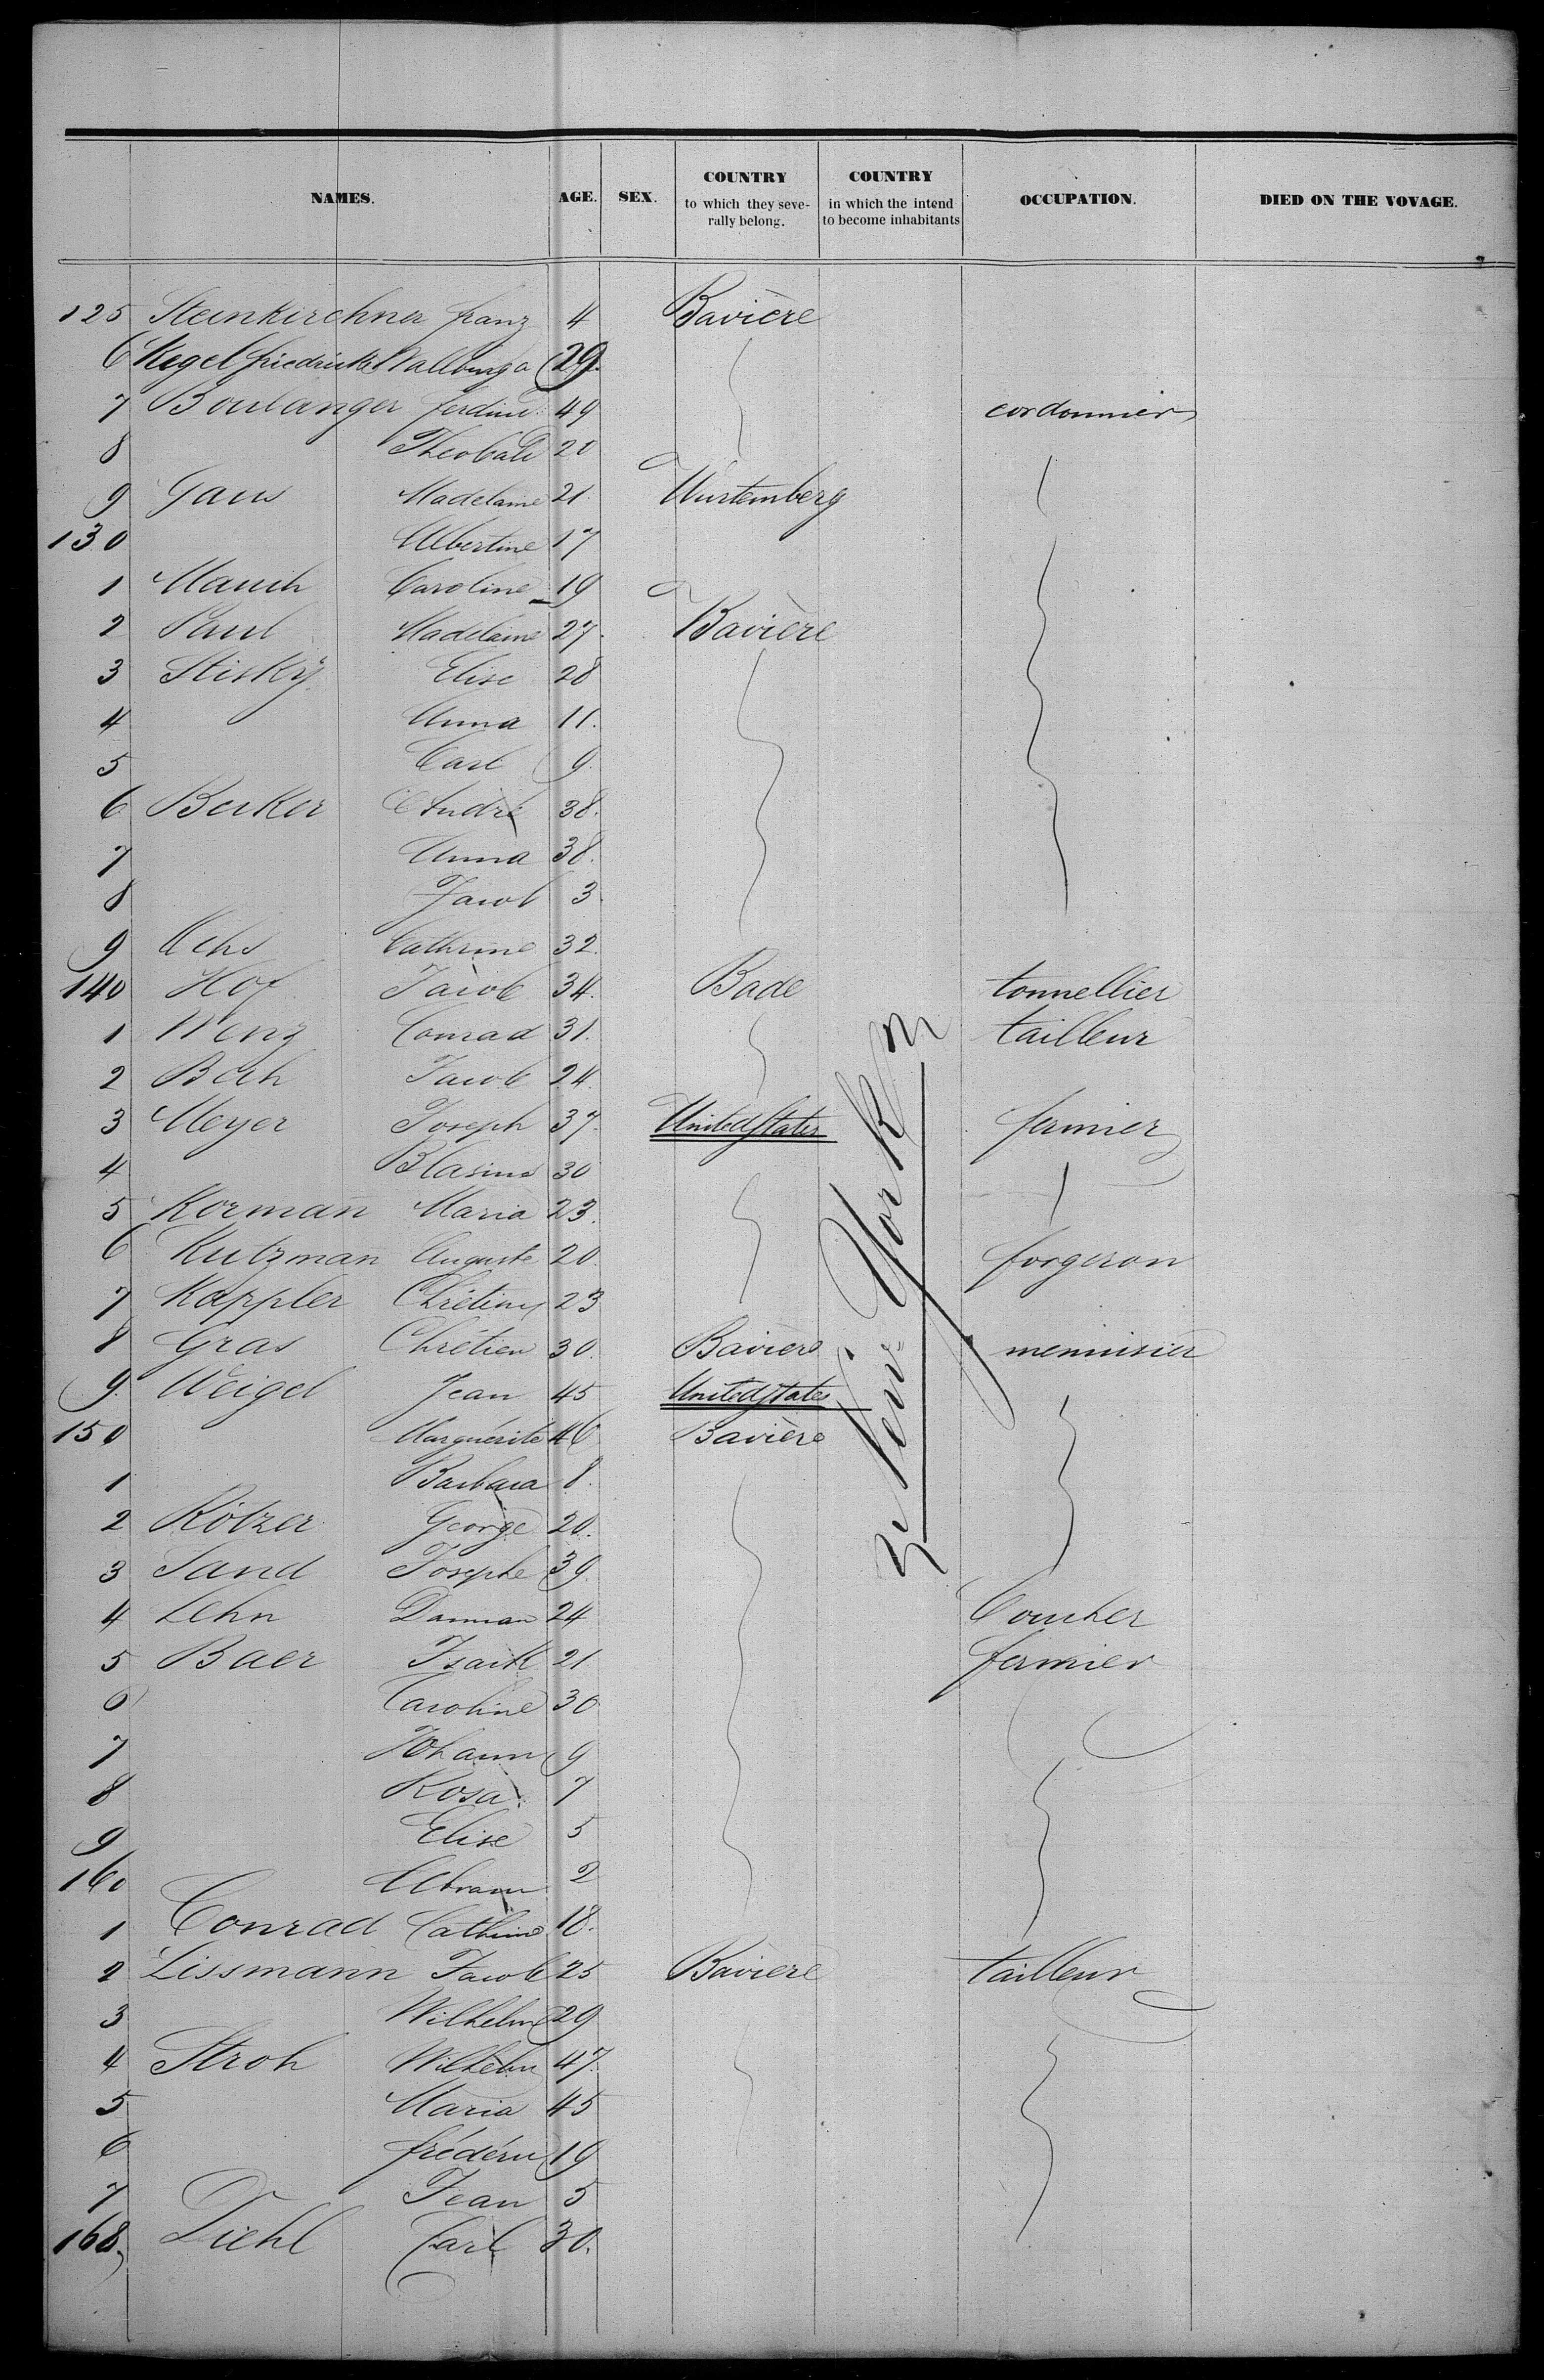 NAMES. AGE. SEX. COUNTRY to which they severally belong. COUNTRY in which the intend to become inhabitants OCCUPATION. DIED ON THE VOVAGE.
125 Steinkirchner franz 4 Bavière
6 Kegel friedricka Wallburga 29.
7 Boulanger ferdind. 49 cordonnier
8 Théobald 20
9 Gaus Madelaine 21. Wurtemberg
130 Albertine 17
1 Mauch Caroline 19
2 Paul Madelaine 27. Bavière
3 Stisky Elise 28
4 Anna 11.
5 Carl 9.
6 Becker André 38.
7 Anna 38.
8 Jacob 3.
9 Ochs Cathrine 32.
140 Hof Jacob 34. Bade tonnellier
1 Wenz Conrad 31. tailleur
2 Bech Jacob 24.
3 Meyer Joseph 37. United States fermier
4 Blasius 30
5 Korman Maria 23.
6 Kutzman Auguste 20. forgeron
7 Kappler Chrétien 23
8 Gras Chrétien 30. Bavière menuisier
9. Weigel Jean 45 United States
150 Marguérite 46 Bavière
1 Barbara 8.
2 Rötzer George 20.
3 Sand Josephe 39.
4 Lehn Damian 24 boucher
5 Baer Isaik 21. fermier
6 Caroline 30
7 Johann 9
8 Rosa 7
9 Elise 5
160 Abram 2
1 Conrad Cathine 18.
2 Lissmann Jacob 25 Bavière tailleur
3 Wilhelm 29
4 Stroh Wilhelm 47.
5 Maria 45
6 fréderic 19
7 Jean 5
168. Diehl Carl 30.
New York